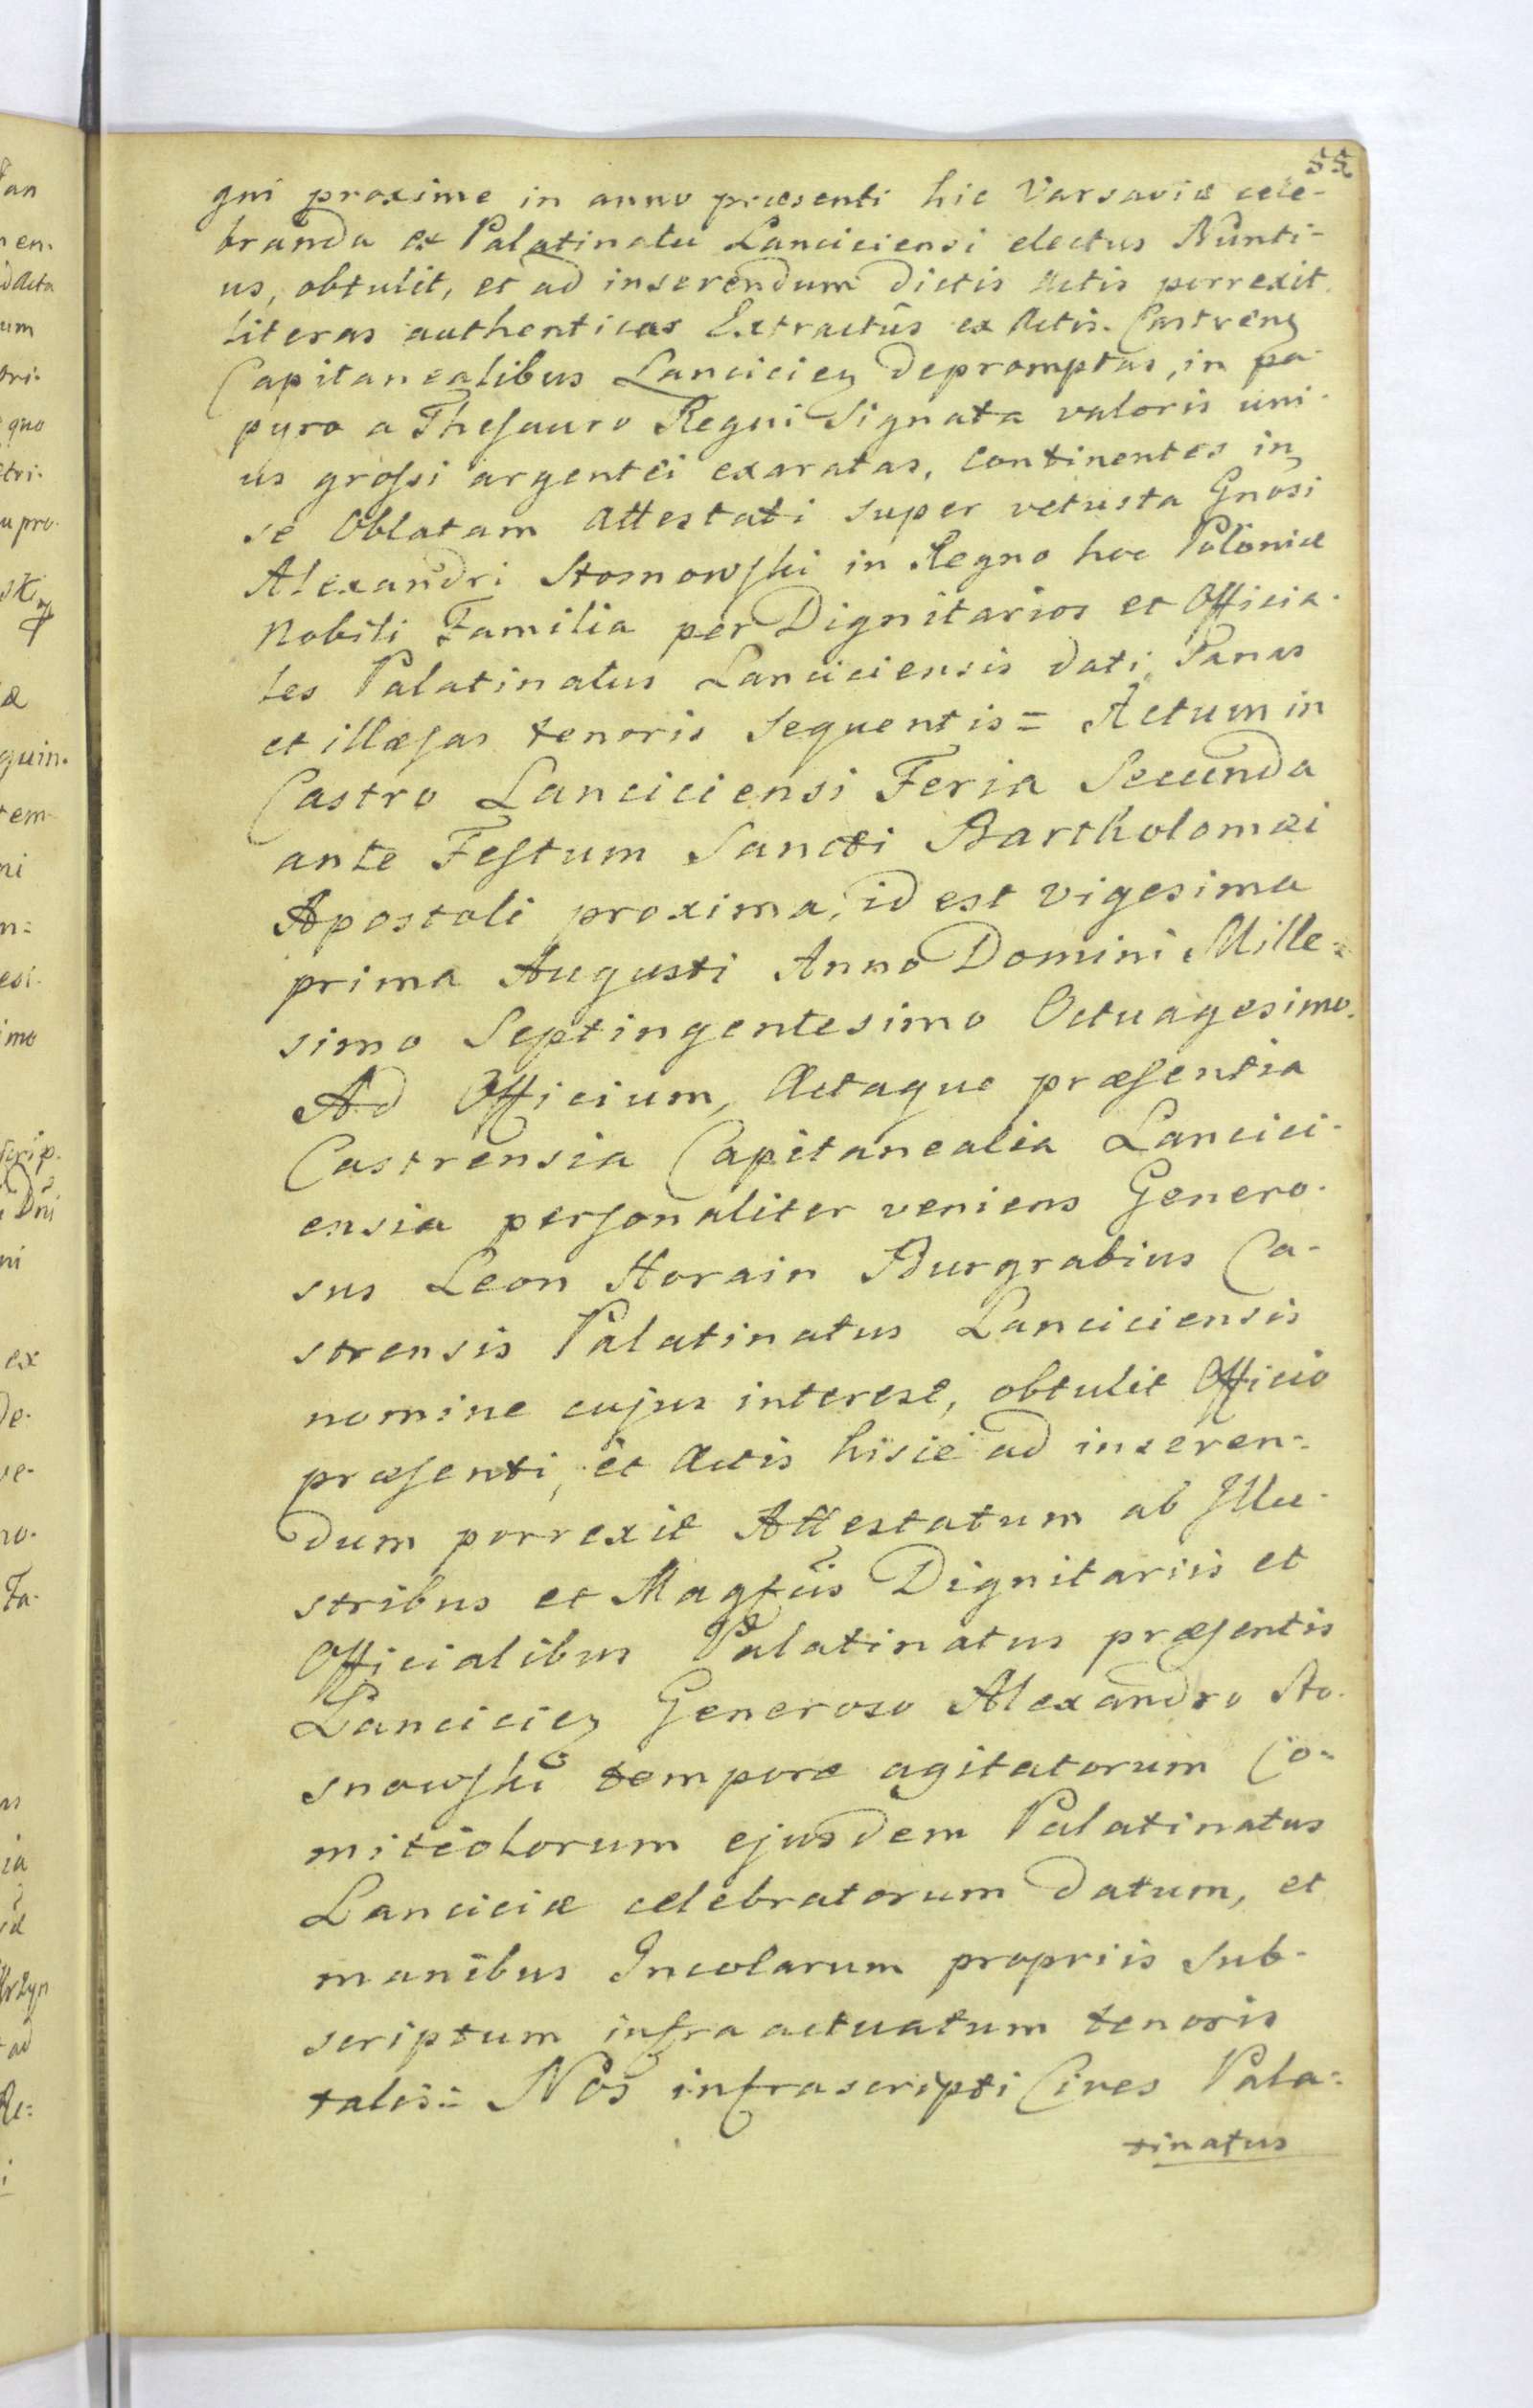 55
gni proxime in anno præsenti hic Varsaviæ cele-
branda ex Palatinatu Lanciciensi electus Nunti-
us, obtulit, et ad inserendum dictis Actis porrexit
literas authenticas Extractûs ex Actis Castren
Capitanealibus Lancicien depromptas, in pa-
pyro a Thesauro Regni Signata valoris uni-
us grossi argentei exaratas, continentes in
se Oblatam Attestati super vetusta Gnosi
Alexandri Stosnowski in Regno hoc Poloniæ
Nobili Familia per Dignitarios et Officia-
les Palatinatus Lanciciensis dati, Sanas
et illæsas tenoris sequentis = Actum in
Castro Lanciciensi Feria Secunda
ante Festum Sancti Bartholomæi
Apostoli proxima, id est vigesima
prima Augusti Anno Domini Mille-
simo Septingentesimo Octuagesimo.
Ad Officium, Actaque præsentia
Castrensia Capitanealia Lancici-
ensia personaliter veniens Genero-
sus Leon Horain Burgrabius Ca-
strensis Palatinatus Lanciciensis
nomine cujus interest, obtulit Officio
præsenti, et Actis hisce ad inseren-
dum porrexit Attestatum ab Illu-
stribus et Magfcis Dignitariis et
Officialibus Palatinatus præsentis
Lancicien Generoso Alexandro Sto-
snowski tempore agitatorum Co-
mitiolorum ejusdem Palatinatus
Lanciciæ celebratorum datum, et
manibus Incolarum propriis sub-
scriptum infra actuatum tenoris
talis = Nos infrascripti Cives Pala-
tinatus